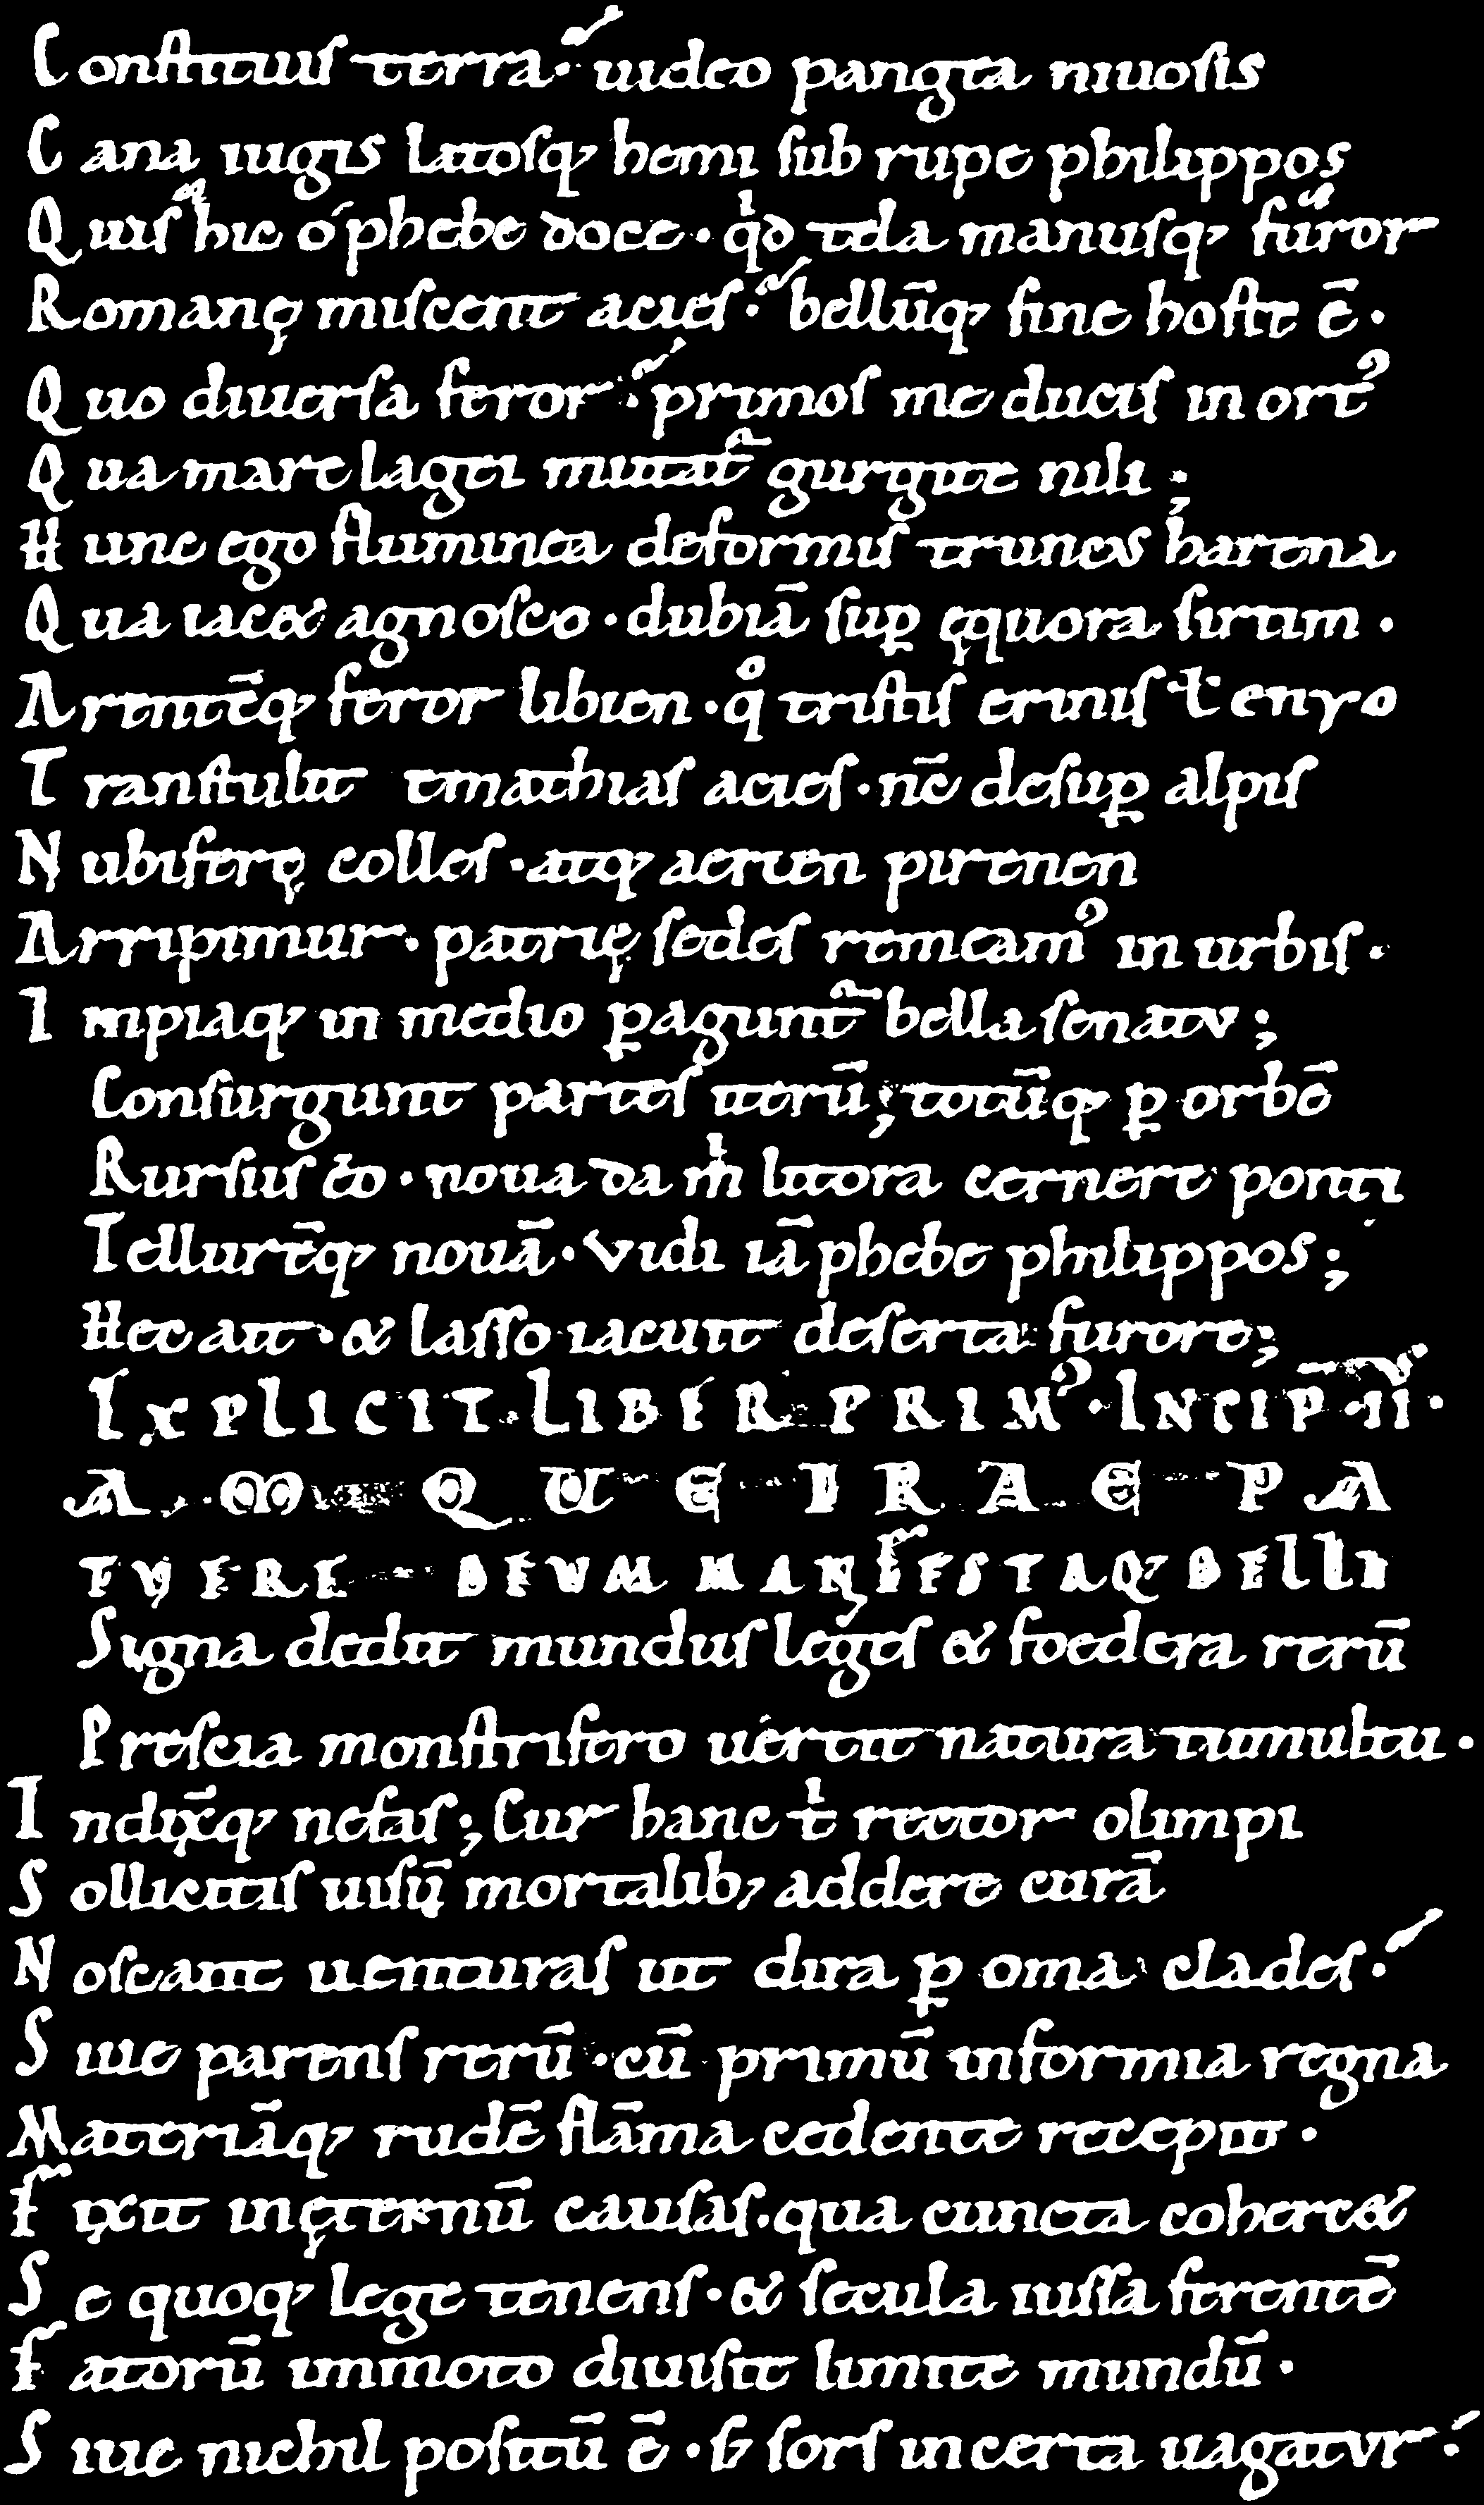 Constituis terra. uideo pangea niuosis
Cana iugis latosq; hemi sub rupe philippos
Quis hic o phebe doce. qd tela manusq; furor
Romanę miscent acies. bellūq; sine hoste ē.
Quo diuersa feror. primos me ducis in ort᾿
Qua mare lagei mutat gurgite nili;
Hunc ego fluminea deformis truncus harena
Qua iacet agnosco. dubiā suꝑ ęquora sirtim.
Arentēq; feror libien. qͦ tristis erinis t enyo
Transtulit emathias acies. nc̄ desuꝑ alpis
Nubiferę colles. atq; aerien pirenen
Arripimur. patrię sedes remeam᾿ in urbis.
Impiaq; in medio ꝑagunt bella senatu;
Consurgunt partes iterū; totūq; ꝑ orbē
Rursus eo. noua da mh litora cernere ponti
Tellurēq; nouā. Vidi iā phebe philippos;
Hec ait. & lasso iacuit deserta furore;
EXPLICIT. LIBER PRIM᾿. INCIPˉ. II.
IAMQUE IRAE PA
TVERE DEVM MANIFESTAQ; BELLI
Signa dedit mundus leges & foedera rerū
Prescia monstrifero uertit natura tumultu.
Indixēq; nefas; Cur hanc t rector olimpi
Sollicitis uisū mortalib; addere curā
Noscant uenturas ut dira ꝑ omȧ clades.
Siue parens rerū. cū primū informia regna
Materiāq; rudē flāma cedente recepit.
Fixit inęternū causas. qua cuncta cohercet
Se quoq; lege tenens. & secula iussa ferentē
Fatorū immoto diuisit limite mundū.
Siue nichil positū ē. s; sors incerta uagatur.